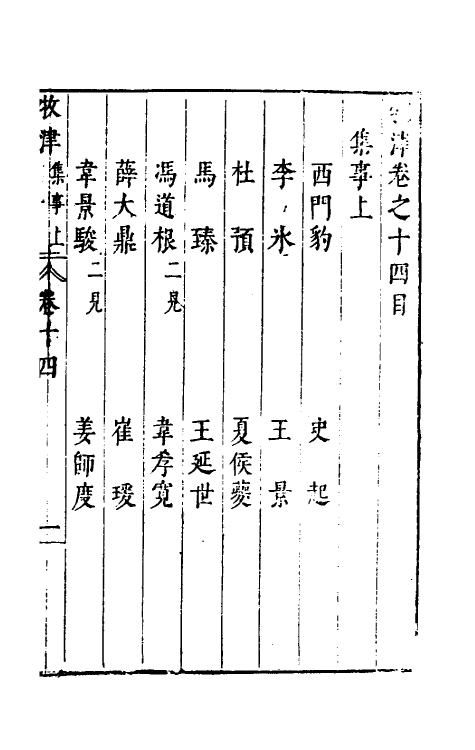 牧津卷之十四目
集事上
西門豹 史起
李冰 王景
杜預 夏侯夔
馬臻 王延世
馮道根二見 韋孝寬
薛大鼎 崔瑗
韋景駿二見 姜師度
牧津 集事上 卷十四 一